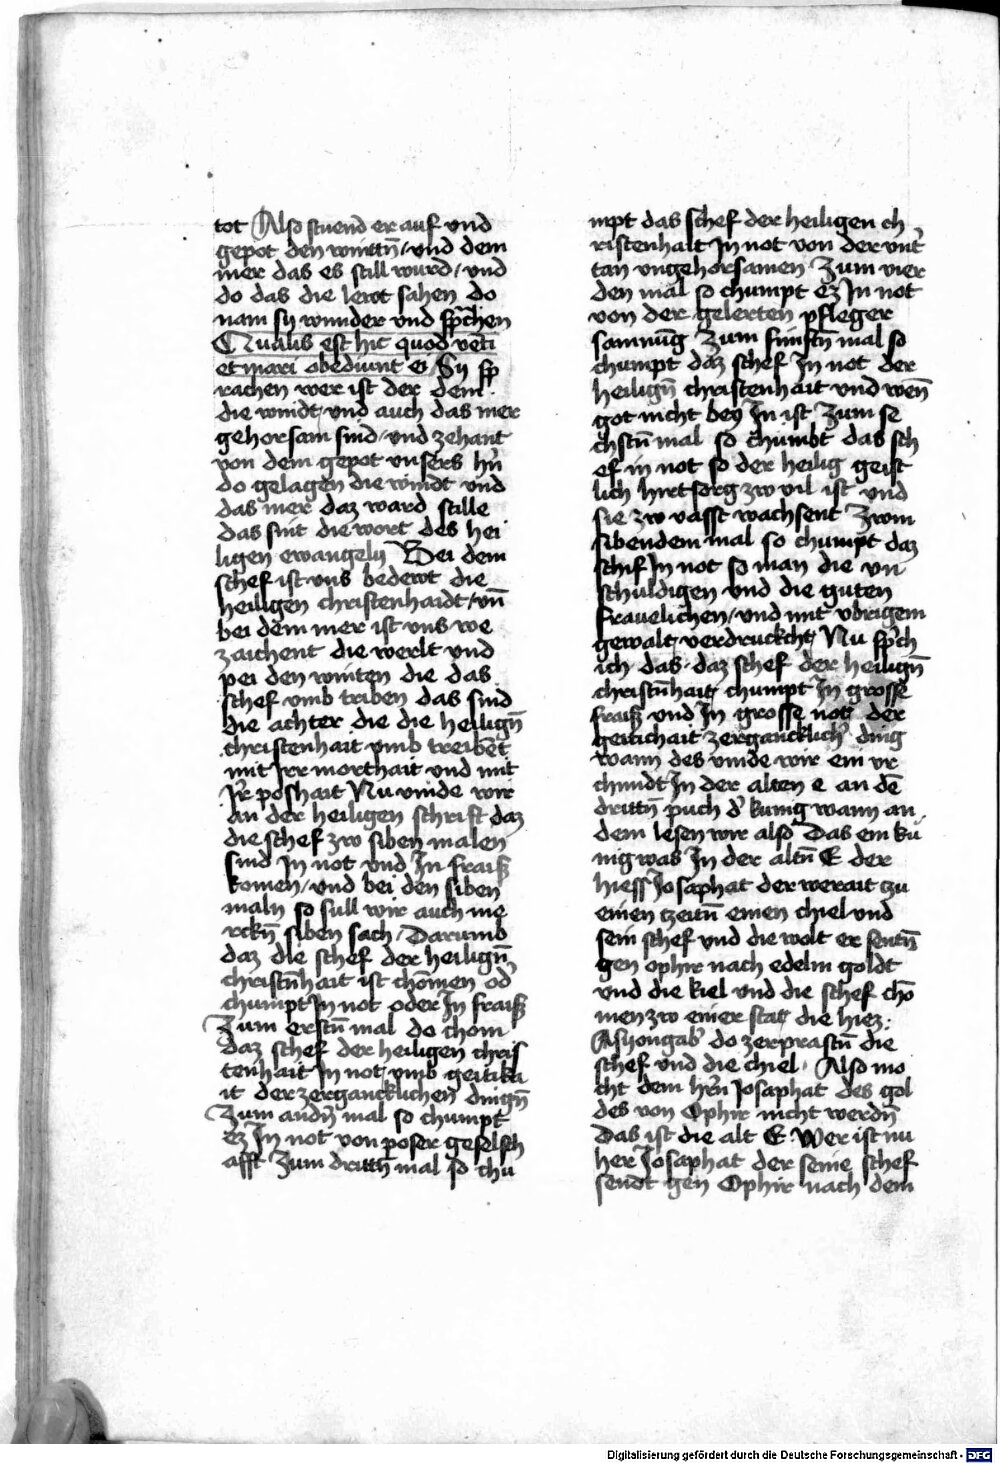 tot Also stuend er auf vnd
gepot den winttn̄ / vnd dem
mer das es still wurd / vnd
do das die lewt sahen do
nam sy wunder vnd sp̄chen
Qualis est hic quod vēti
et mari obediunt ei / Sy sp
rachen wer ist der dem
die windt vnd auch das mer
gehorsam sind / vnd zehant
von dem gepot vnsers hn̄
do gelagen die windt vnd
das mer daz ward stille
das sint die wort des hei
ligen ewangely Bei dem
schef ist vns bedewt die
heiligen christenhaidt / vn̄
bei dem mer ist vns we
zaichent die werlt vnd
pei den winten die das
schef vmb triben das sind
die achter die die heilign̄
christenhait vmb treibēt
mit Irr morthait vnd mit
Ir̄ poshait Nu vinde wir
an der heiligen schrift daz
die schef zw siben malen
sind In not vnd In fraiß
komen / vnd bei den siben
maln so sull wir auch me
rckn̄ siben sach / Darumb
daz die schef der heilign̄
christn̄hait ist chōmen od̾
chumpt In not oder In fraiß
Zum erstn̄ mal do chom
daz schef der heiligen chris
tenhait In not / vmb geitika
it der zerganckłichen dingn̄
Zum andn̄ mal so chumpt
ez In not von poser geselsch
afft Zum drittn̄ mal so chu
mpt das schef der heiligen ch
ristenhait In not von der vnt̾
tan vngehorsamen Zum vier
den mal so chumpt ez In not
von der gelerten pfleger
samnūg Zum fūnftn̄ mal so
chumpt daz schef In not der
heilign̄ christenhait vnd wen̄
got nicht bey In ist Zum se
chstn̄ mal so chumbt das sch
ef in not so der heilig geist
lich hirt sorg zw vil ist vnd
sie zw vasst wachsent Zwm
sibendem mal so chumpt daz
schif In not so man die vn
schuldigen vnd die guten
frauelichen / vnd mit vbrigem
gewalt verdruckcht Nu sp̄ch
ich das daz schef der heilign̄
christn̄hait chumpt In grosse
fraiß vnd In grosse not der
geitichait zerganckłich̾ ding
wann des vinde wir ein vr
chundt In der alten e an dē
drittn̄ puch d̾ kunig wann an
dem lesen wir also Das ein kū
nig was In der altn̄ E der
hiess Josaphat der werait tzu
einen tzeitn̄ einen chiel vnd
sein schef vnd die wolt er sentn̄
gen ophir nach edelm goldt
vnd die kiel vnd die schef chō
men zw einer stat die hiez
Asyongab̾ do zerprastn̄ die
schef vnd die chiel Also mo
cht dem hr̄n Josaphat des gol
des von Ophir nicht werdn̄
Das ist die alt E Wer ist nu
her Josaphat der seine schef
sendt gen Ophir nach dem
Digitalisierung gefördert durch die Deutsche Forschungsgemeinschaft - DFG